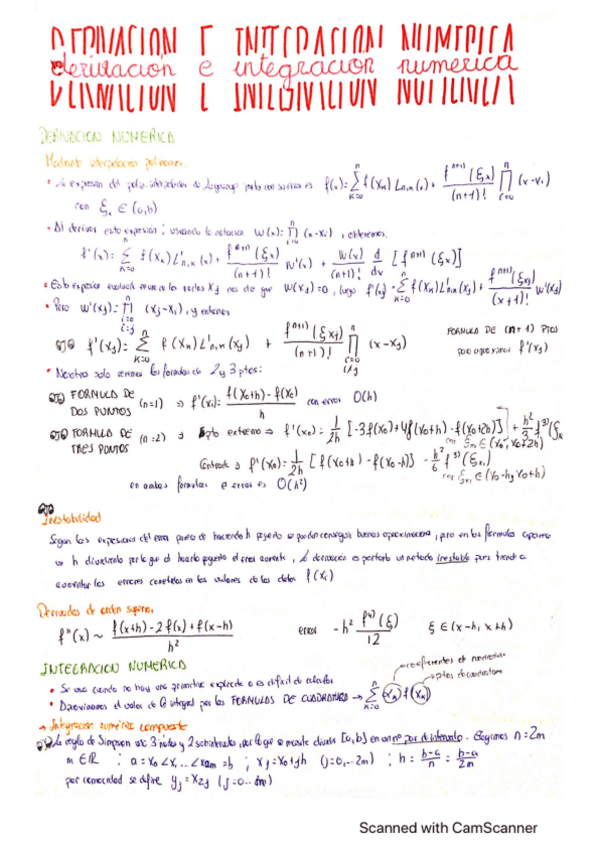 DERIVACION E INTEGRACION NUMERICA
derivación e integración numérica
DERIVACION E INTEGRACION NUMERICA
DERIVACION NUMERICA
Mediante interpolación polinomica
• La expresión del polin. interpolador de Lagrange junto con su error es f(x) = Σ_{k=0}^{n} f(x_k) L_{n,k}(x) + f^{(n+1)}(ξ_x)/(n+1)! ∏_{i=0}^{n} (x-x_i)
con ξ_x ∈ (a,b)
• Al derivar esta expresión, usando la notación W(x) = ∏_{i=0}^{n} (x-x_i), obtenemos:
f'(x) = Σ_{k=0}^{n} f(x_k) L'_{n,k}(x) + f^{(n+1)}(ξ_x)/(n+1)! W'(x) + W(x)/(n+1)! d/dx [f^{(n+1)}(ξ_x)]
• Esta expresión evaluada en uno de los nodos x_j nos da que W(x_j)=0, luego f'(x_j) = Σ_{k=0}^{n} f(x_k) L'_{n,k}(x_j) + f^{(n+1)}(ξ_{xj})/(x+1)! W'(x_j)
• Pero W'(x_j) = ∏_{i=0, i≠j}^{n} (x_j-x_i), y entonces
f'(x_j) = Σ_{k=0}^{n} f(x_k) L'_{n,k}(x_j) + f^{(n+1)}(ξ_{xj})/(n+1)! ∏_{i=0, i≠j}^{n} (x-x_j) FORMULA DE (n+1) PTOS
para aproximar f'(x_j)
• Nosotros solo veremos las formulas de 2 y 3 ptos:
FORMULA DE DOS PUNTOS (n=1) ⇒ f'(x_0) = f(x_0+h) - f(x_0) / h con error O(h)
FORMULA DE TRES PUNTOS (n=2) ⇒ Pto extremo ⇒ f'(x_0) = 1/2h [-3f(x_0)+4f(x_0+h) - f(x_0+2h)] + h²/3 f^{3)}(ξ_x
con ξ_{x_0} ∈ (x_0, x_0+2h)
Centrado ⇒ f'(x_0) = 1/2h [f(x_0+h) - f(x_0-h)] - h²/6 f^{3)}(ξ_{x_1})
con ξ_{x_1} ∈ (x_0-h, x_0+h)
en ambas formulas el error es O(h²)
Inestabilidad
Según las expresiones del error parece que haciendo h pequeño se pueden conseguir buenas aproximaciones, pero en las formulas aparece
un h dividiendo por lo que al hacerlo pequeño el error aumenta. La derivación es por tanto un método inestable pues tiende a
aumentar los errores cometidos en los valores de los datos f(x_i)
Derivadas de orden superior
f''(x) ~ f(x+h) - 2f(x) + f(x-h) / h² error -h² f^{(4)}(ξ)/12 ξ ∈ (x-h, x+h)
INTEGRACION NUMERICA
• Se usa cuando no hay una primitiva explícita o es dificil de calcular
• Aproximamos el valor de la integral por las FORMULAS DE CUADRATURA → Σ_{k=0}^{n} α_k f(x_k)
coeficientes de
ptos de cuadratura
→ Integración numérica compuesta
La regla de Simpson usa 3 nodos y 2 subintervalos, por lo que se necesita dividir [a,b] en un nº par de intervalos. Cogemos n=2m
m ∈ ℝ ; a = x_0 < x_1 ... < x_{2m} = b ; x_j = x_0 + jh (j=0,..2m) ; h = b-a/n = b-a/2m
por comodidad se define y_j = x_{2j} (j=0...m)
Scanned with CamScanner